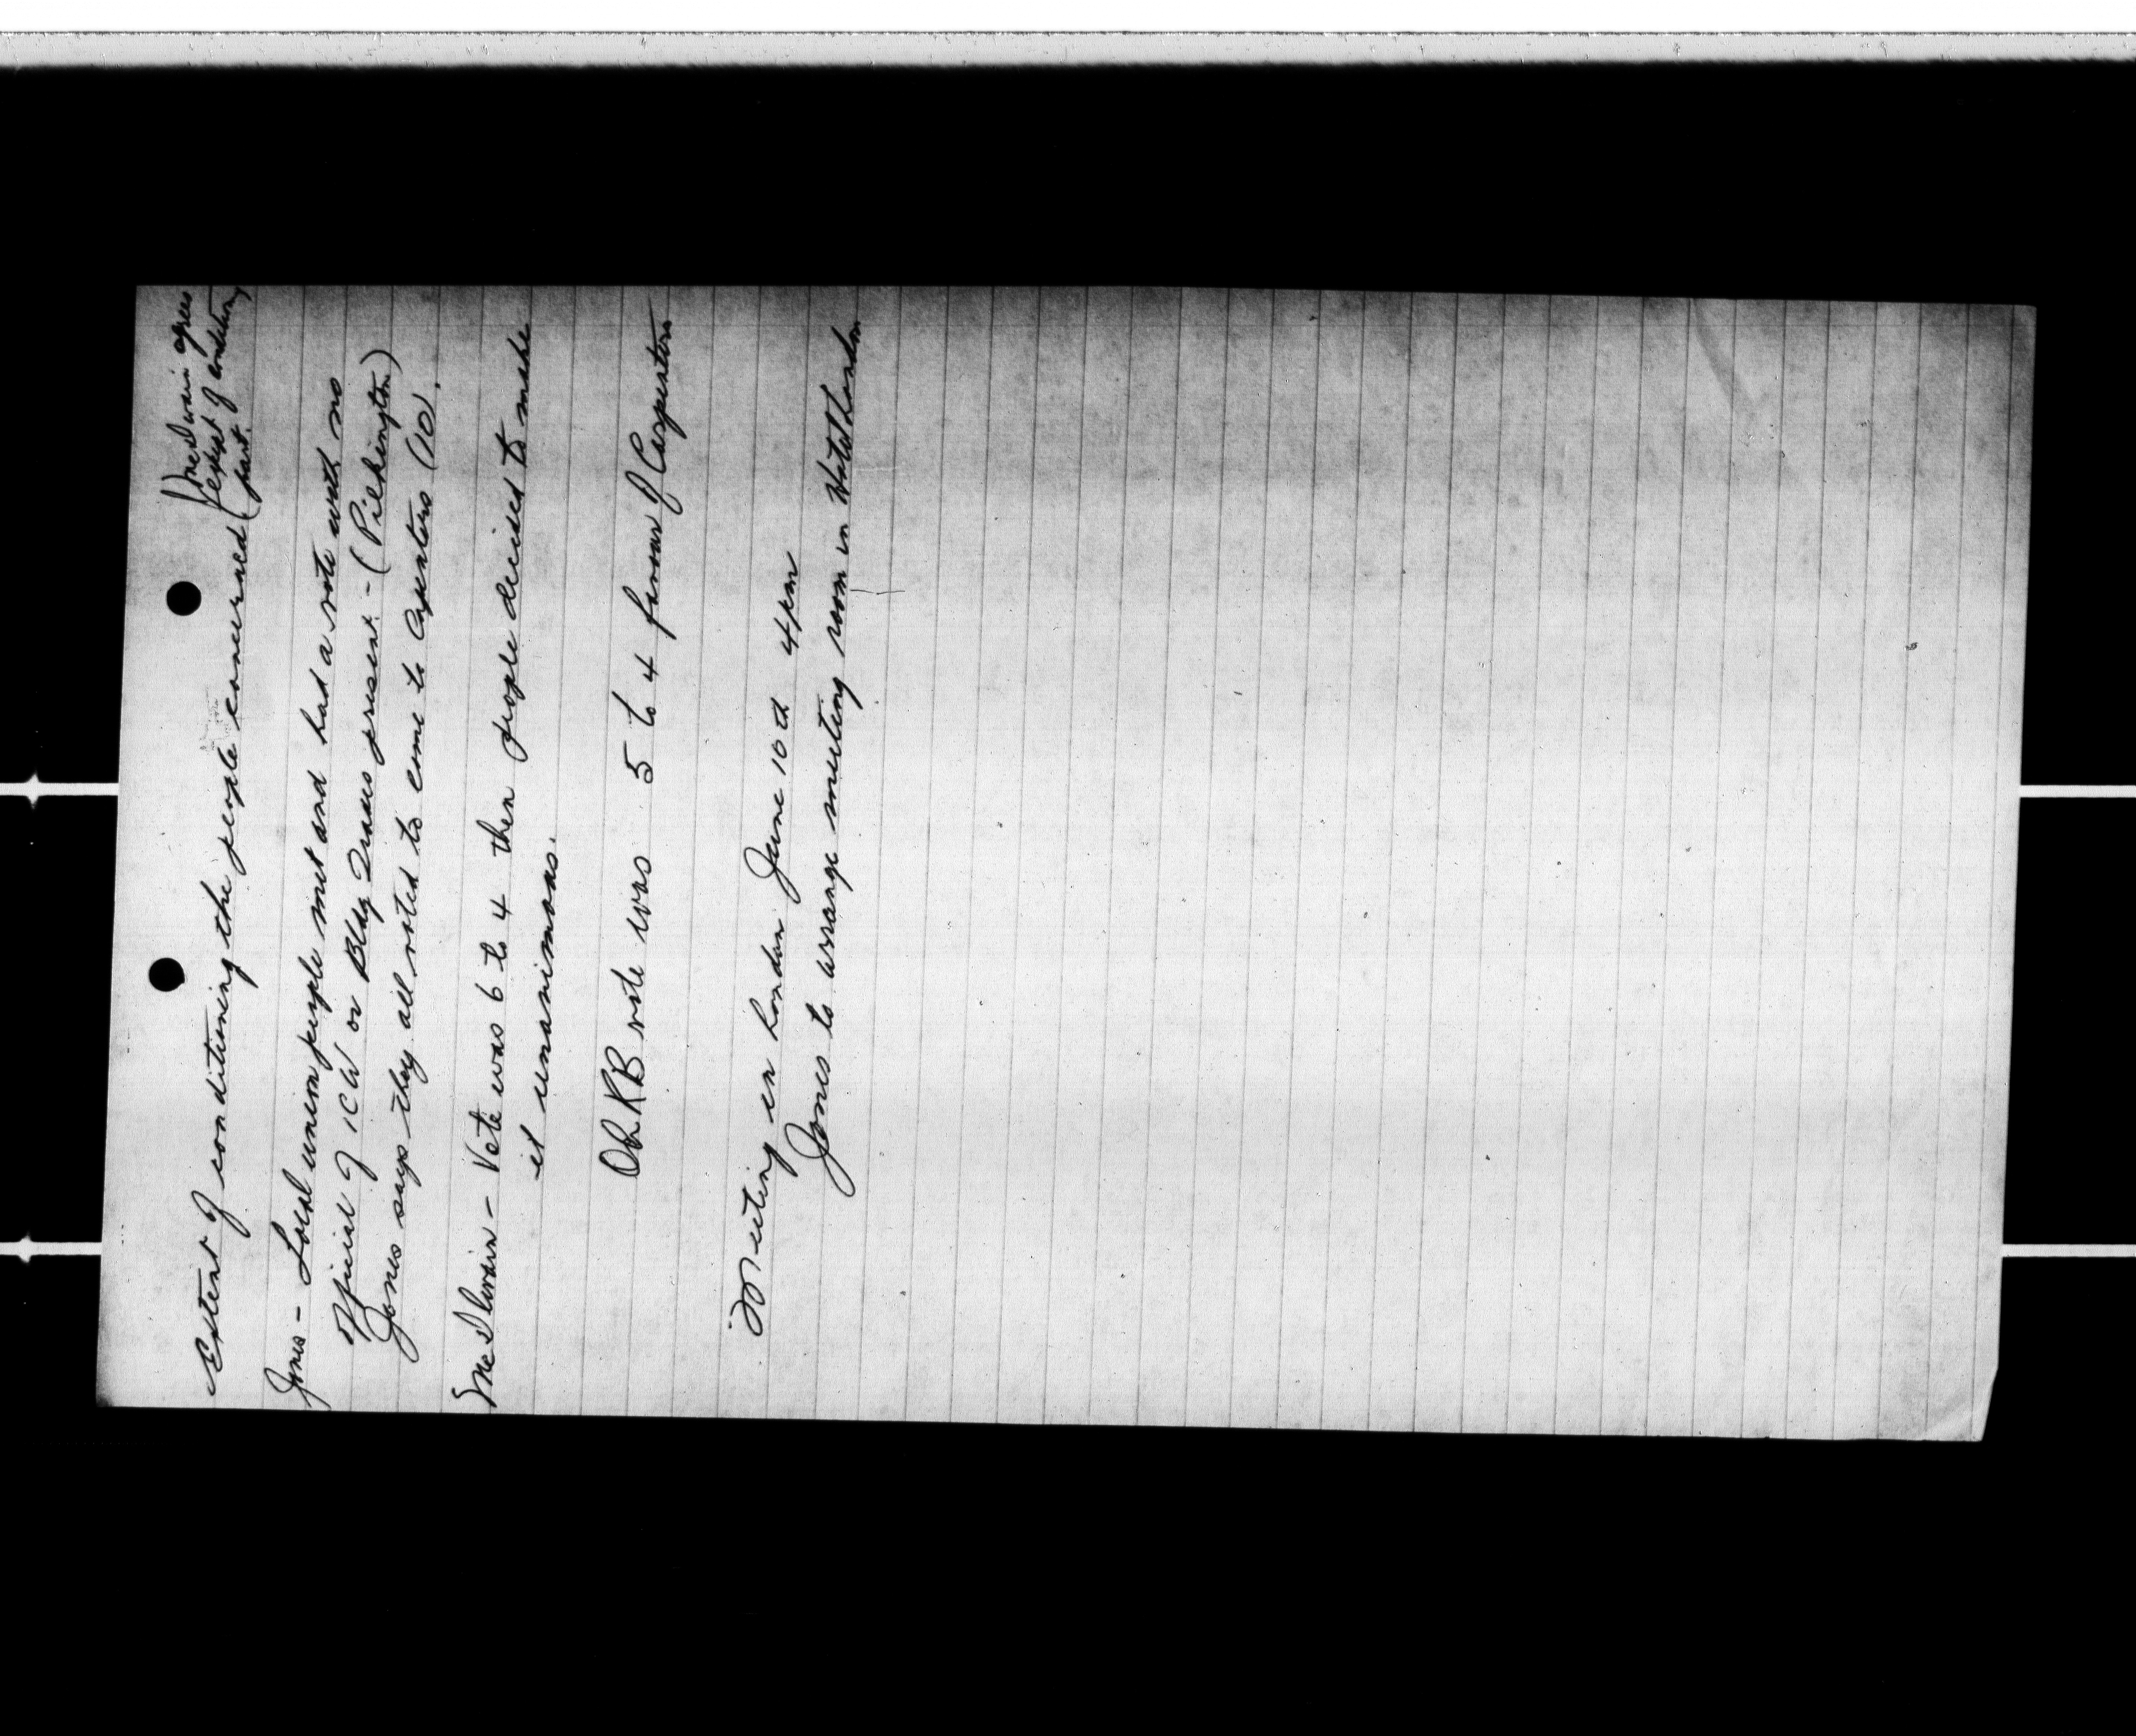 Extent of conditioning the people concerned (McIlwain agrees
except of conditioning
part.
Jones - Local union people met and had a vote with no
official of ICW or Bldg Trades present - (Pilkington)
Jones says they all voted to come to Carpenters (10).
McIlwain - Vote was 6 to 4 then people decided to make
it unanimous.
vote was 5 to 4 favour of Carpenters
Meeting in London June 10th 4 pm
Jones to arrange meeting room in Hotel London